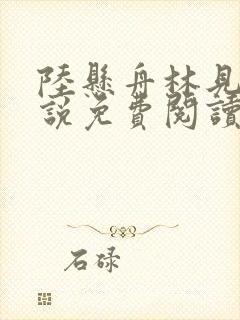 陸懸舟林見
說免費閱讀
石碌